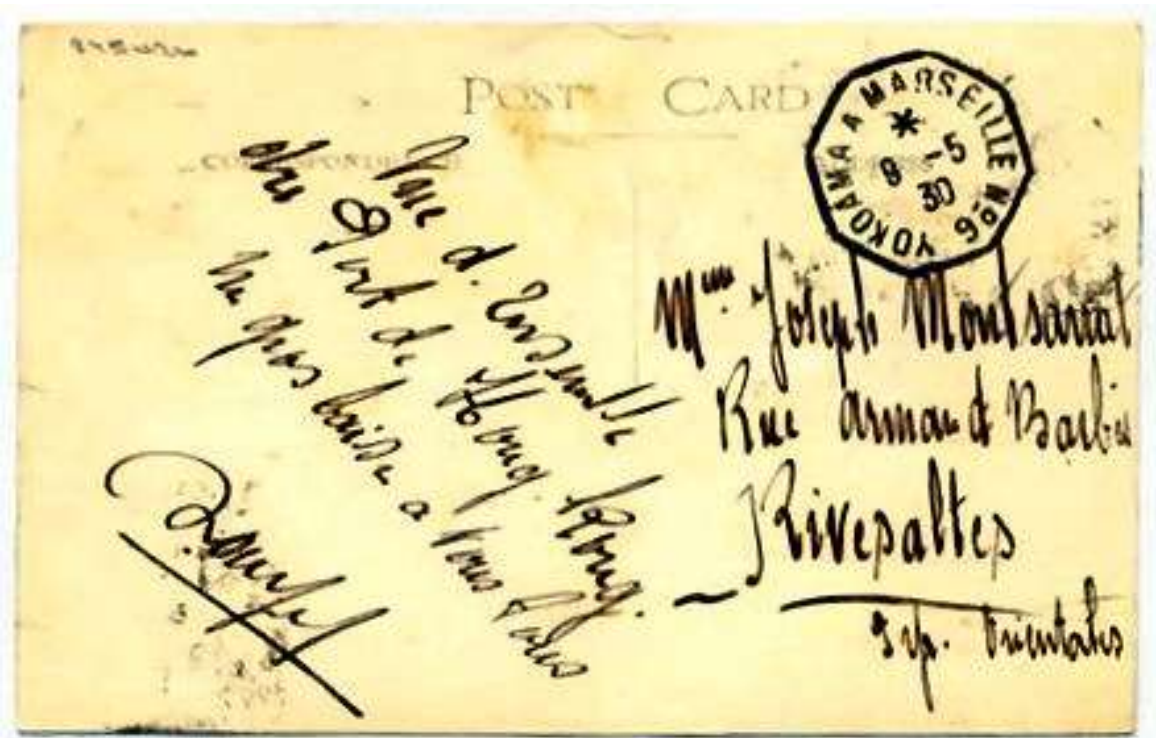 POST CARD
CORRESPONDENCE
YOKOAMA A MARSEILLE No 6
* 8 -5
30
Vue d. Ensemble
du Port de Hong Kong.
Un gros baiser a vous tous
Mme Joseph Montsarrat
Rue Armand Barbès
Rivesaltes
Orientales